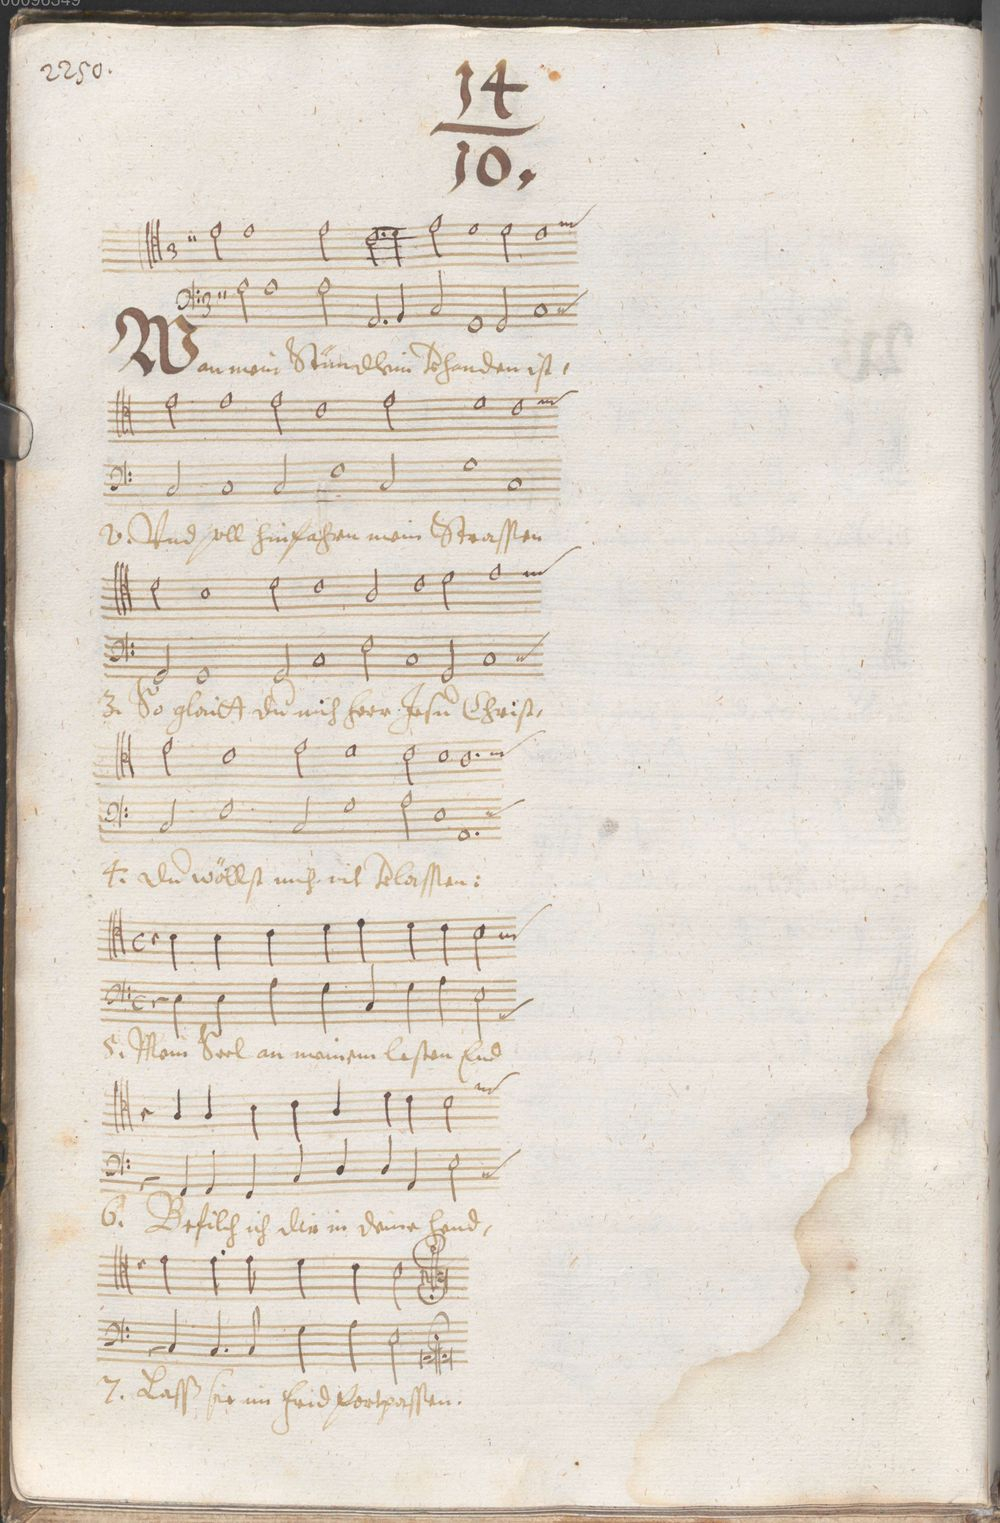 00090349
2250.
14
10.
Wan mein Stündlein vorhanden ist,
2. Und soll hinfahren mein Strassen
3. So glaitt du mich herr Jesu Christ,
4. du wöllst mich nit verlassen:
5. Mein Seel an meinem lesten End
6. Befilch ich dir in deine hend,
7. Lass sie im frid fortpassen.